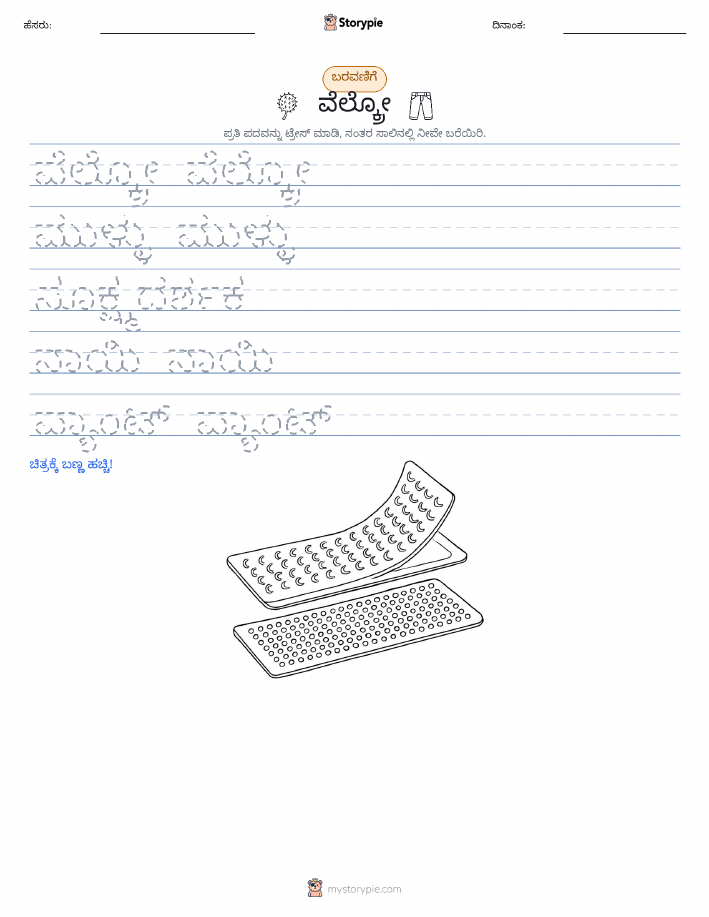 ಹೆಸರು:
Storypie
ದಿನಾಂಕ:
ಬರವಣಿಗೆ
ವೆಲ್ಕ್ರೋ
ಪ್ರತಿ ಪದವನ್ನು ಟ್ರೇಸ್ ಮಾಡಿ, ನಂತರ ಸಾಲಿನಲ್ಲಿ ನೀವೇ ಬರೆಯಿರಿ.
ವೆಲ್ಕ್ರೋ ವೆಲ್ಕ್ರೋ
ಮುಳ್ಳು ಮುಳ್ಳು
ಸೂಕ್ಷ್ಮದರ್ಶಕ
ನಾಯಿ ನಾಯಿ
ಪ್ಯಾಂಟ್ ಪ್ಯಾಂಟ್
ಚಿತ್ರಕ್ಕೆ ಬಣ್ಣ ಹಚ್ಚಿ!
mystorypie.com